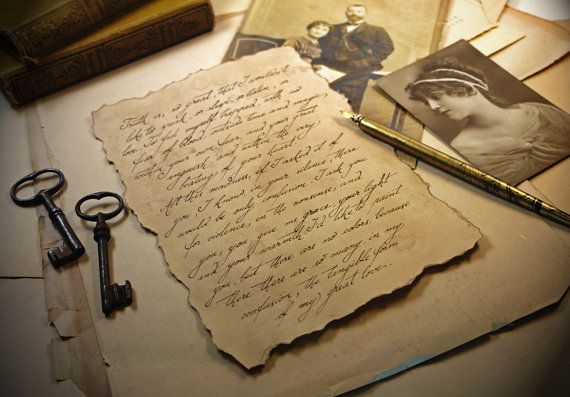 Truth is, so great, that I wouldn't
like to speak, or sleep, or listen, or
love. To feel myself trapped, with no
fear of blood, outside time and magic,
within your own fear, and your great
anguish, and within the very
beating of your heart.
All this madness, if I asked it of
you, I know, in your silence, there
would be only confusion. I ask you
for violence, in the nonsense, and
you, you give me grace, your light
and your warmth. I'd like to paint
you, but there are no colors, because
there are so many, in my
confusion, the tangible form
of my great love...